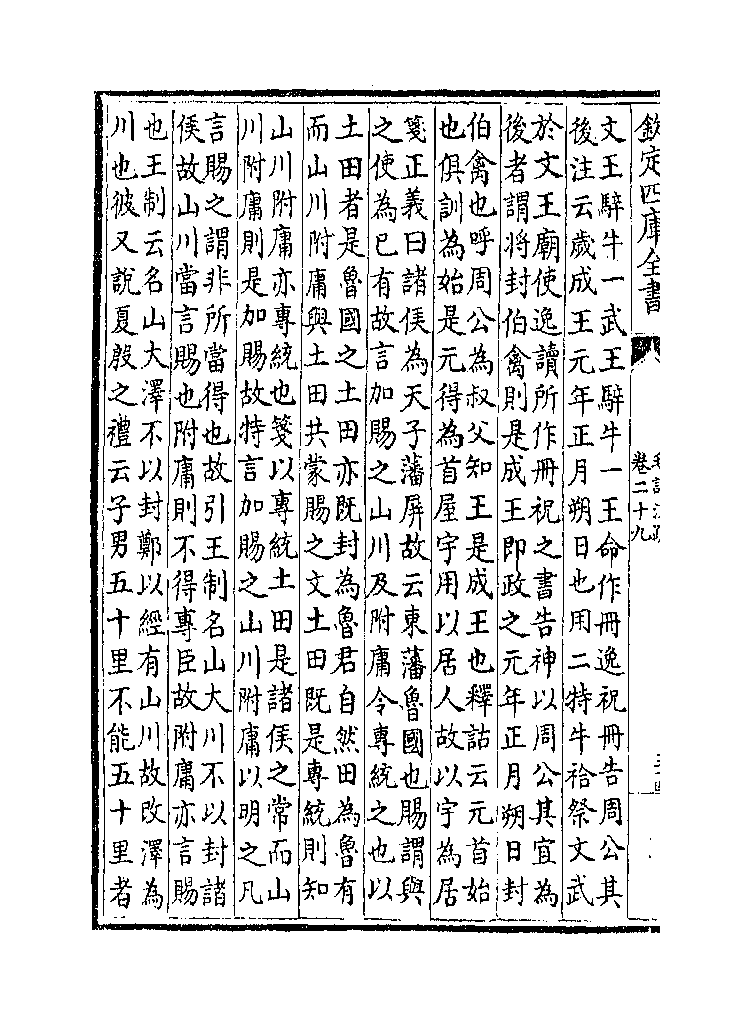 欽定四庫全書
卷二十九
文王騂牛一武王騂牛一王命作冊逸祝冊告周公其
後注云歲成王元年正月朔日也用二特牛祫祭文武
於文王廟使逸讀所作冊祝之書告神以周公其宜為
後者謂将封伯禽則是成王即政之元年正月朔日封
伯禽也呼周公為叔父知王是成王也釋詁云元首始
也俱訓為始是元得為首屋宇用以居人故以宇為居
箋正義曰諸侯為天子藩屏故云東藩魯國也賜謂與
之使為已有故言加賜之山川及附庸令專統之也以
土田者是魯國之土田亦既封為魯君自然田為魯有
而山川附庸與土田共蒙賜之文土田既是專統則知
山川附庸亦專統也箋以專統土田是諸侯之常而山
川附庸則是加賜故特言加賜之山川附庸以明之凡
言賜之謂非所當得也故引王制名山大川不以封諸
侯故山川當言賜也附庸則不得專臣故附庸亦言賜
也王制云名山大澤不以封鄭以經有山川故改澤為
川也彼又說夏殷之禮云子男五十里不能五十里者